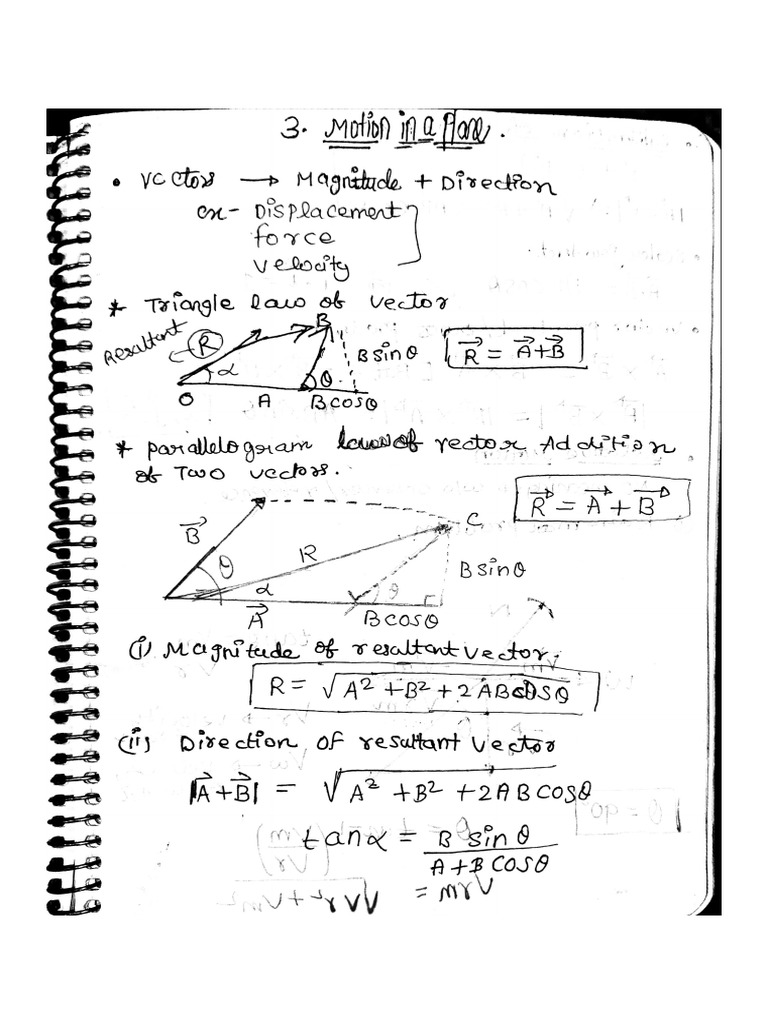 3. Motion in a Plane.
• Vectors → Magnitude + Direction
ex- Displacement
force
velocity
* Triangle law of vector
B
Resultant
R
α
θ
B sinθ
R⃗ = A⃗+B⃗
O
A
B cosθ
* parallelogram laws of vector Addition
of Two vectors.
R⃗ = A⃗ + B⃗
C
B⃗
θ
R
α
θ
B sinθ
A⃗
B cosθ
(i) Magnitude of resultant vector.
R = √A² + B² + 2 AB cosθ
(ii) Direction of resultant vector
|A⃗+B⃗| = √A² + B² + 2AB cosθ
tanα = B sinθ
A+B cosθ